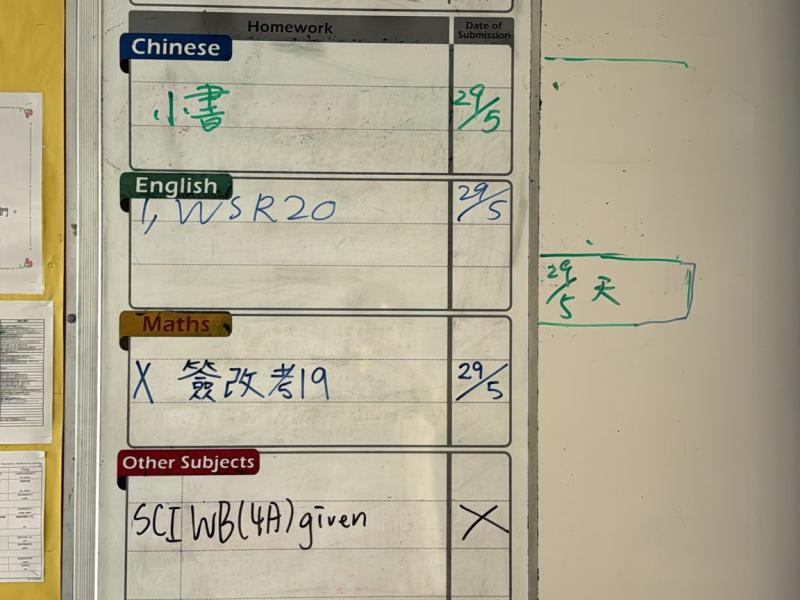 Homework
Date of Submission
Chinese
小書 29/5
English
1, WSR20 29/5
29/5 天
Maths
X 簽改考19 29/5
Other Subjects
SCI WB(4A) given X